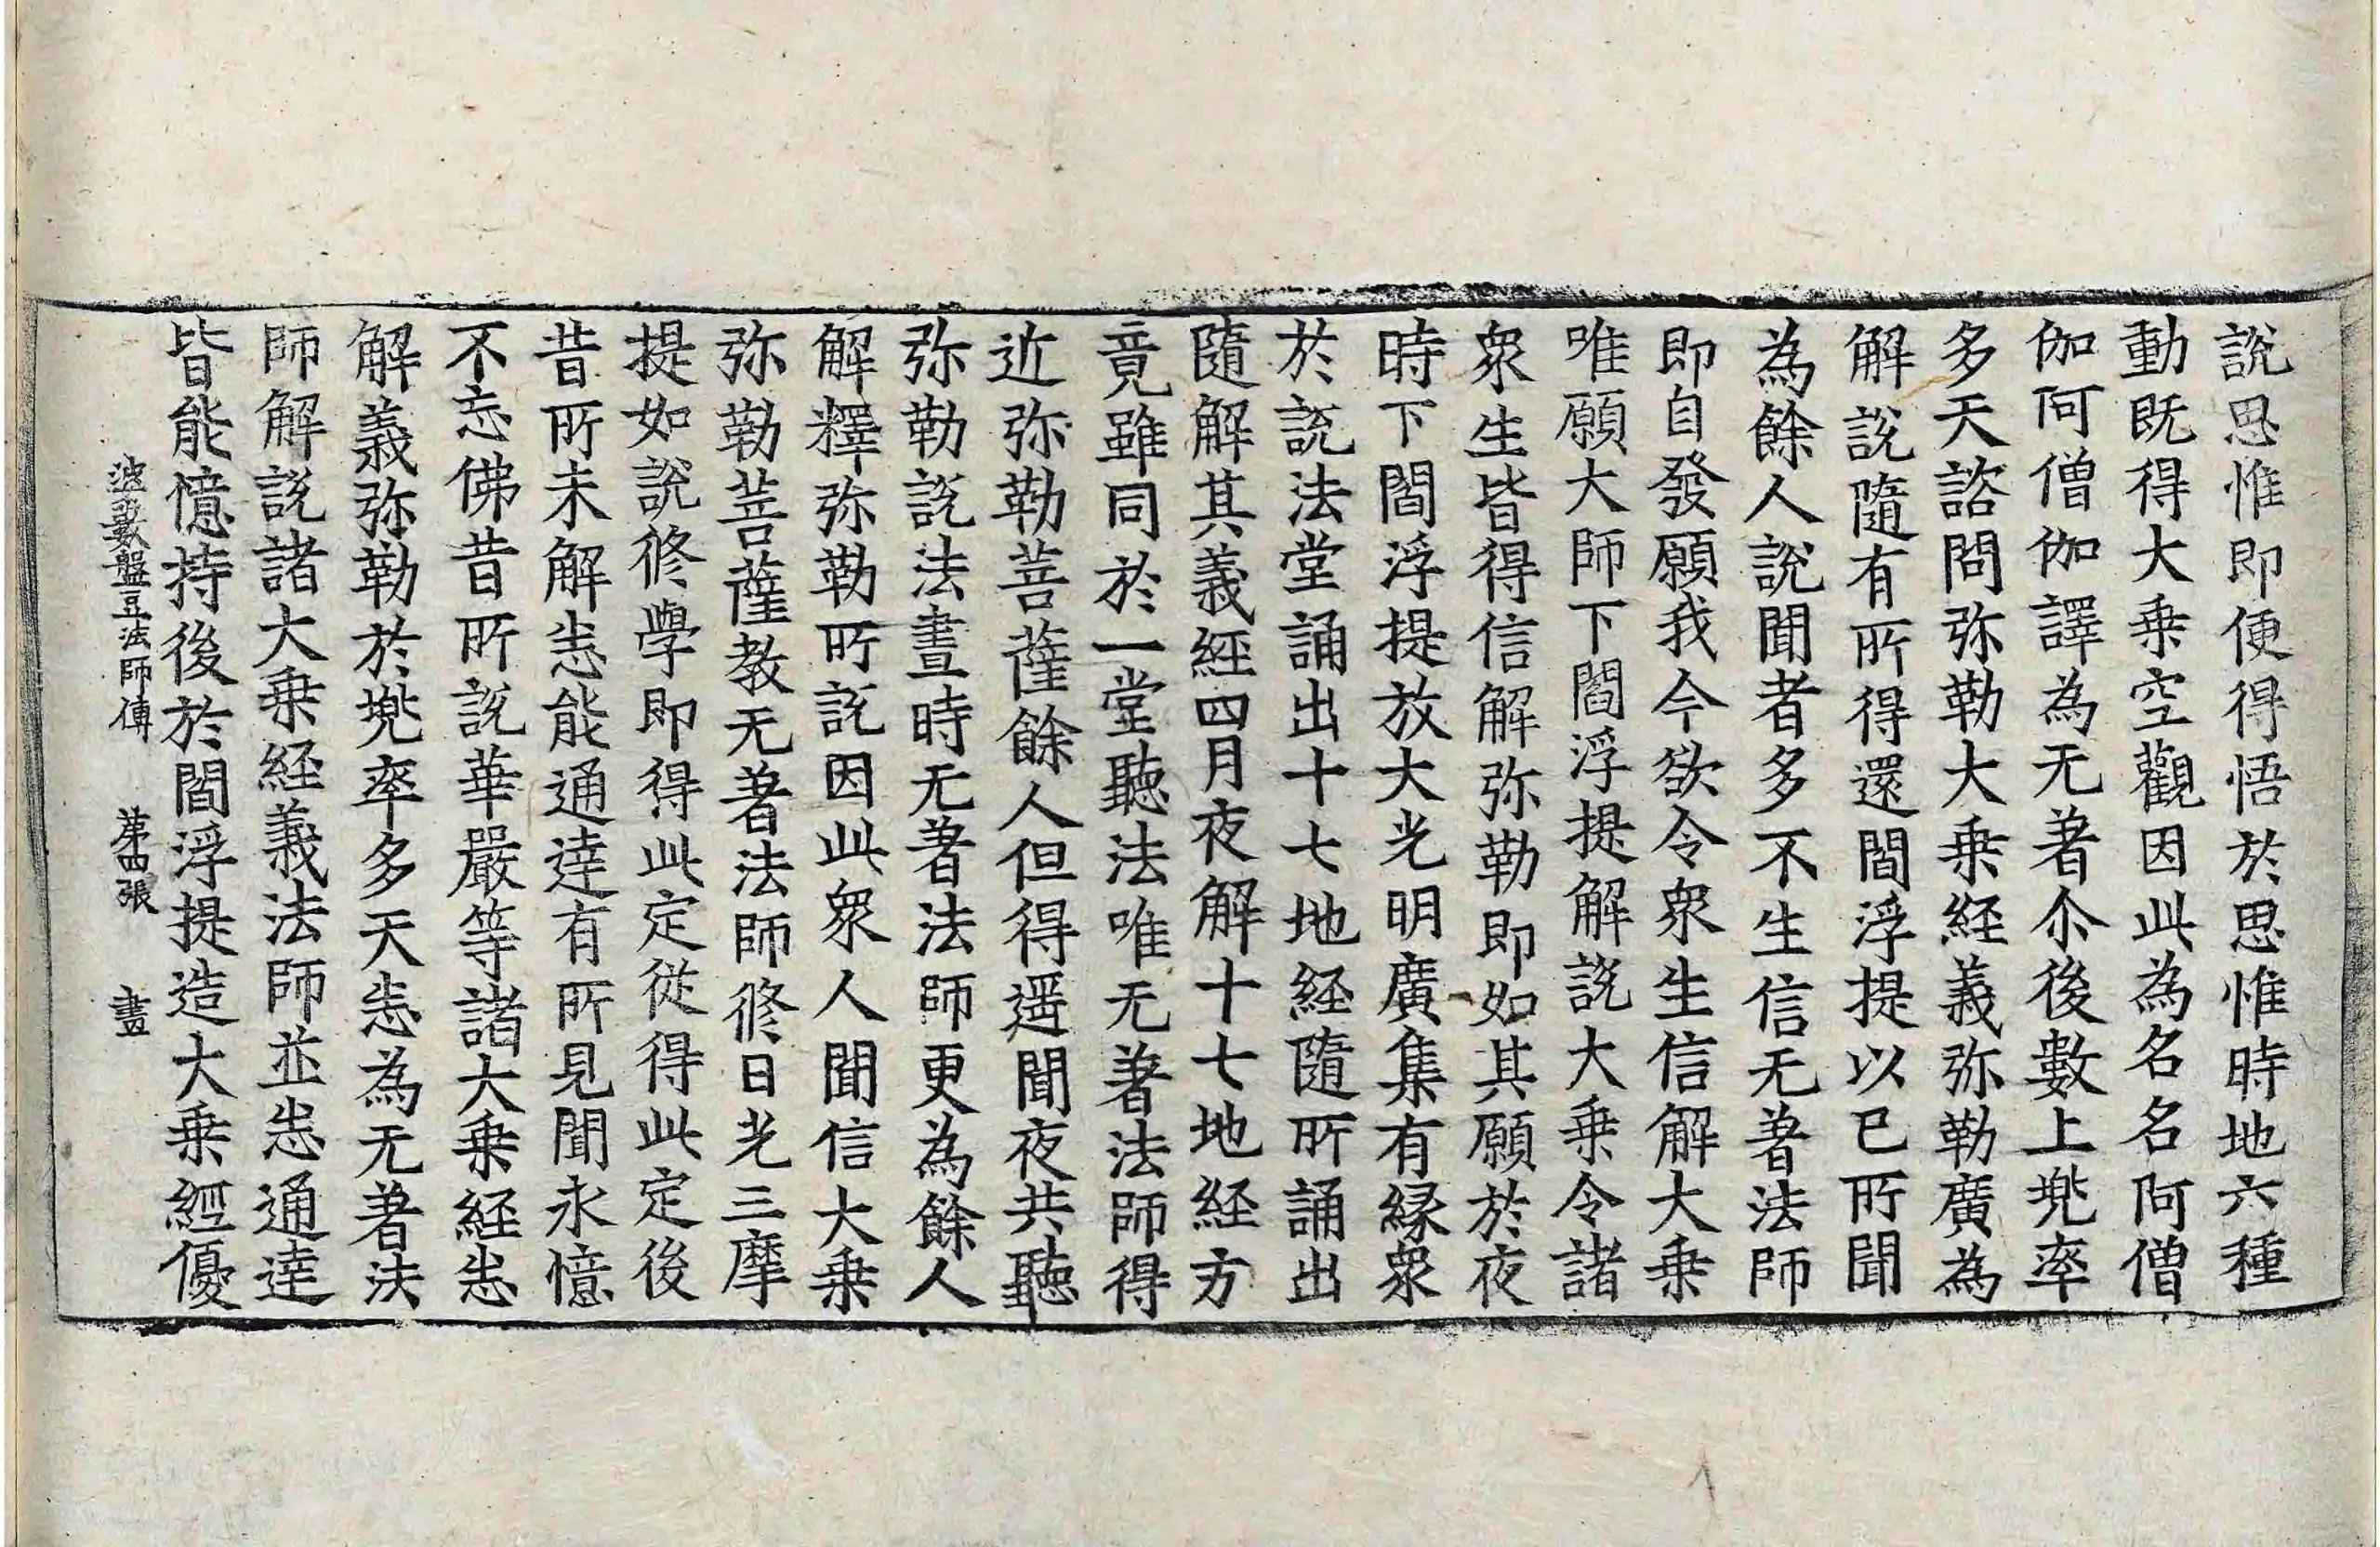 說思惟即便得悟於思惟時地六種
動旣得大乗空觀因此為名名阿僧
伽阿僧伽譯為无著尒後數上兠率
多天諮問弥勒大乗経義弥勒廣為
解說隨有所得還閻浮提以已所聞
為餘人說聞者多不生信无著法師
即自發願我今欲令衆生信解大乗
唯願大師下閻浮提解說大乗令諸
衆生皆得信解弥勒即如其願於夜
時下閻浮提放大光明廣集有縁衆
於說法堂誦出十七地経隨所誦出
隨解其義經四月夜解十七地経方
竟雖同於一堂聽法唯无著法師得
近弥勒菩薩餘人但得遥聞夜共聽
弥勒說法晝時无著法師更為餘人
解釋弥勒所說因此衆人聞信大乗
弥勒菩薩教无著法師修日光三摩
提如說修學即得此定從得此定後
昔所未解悉能通達有所見聞永憶
不忘佛昔所說華嚴等諸大乗経悉
解義弥勒於兠率多天悉為无著法
師解說諸大乗経義法師並悉通達
皆能憶持後於閻浮提造大乗經優
波藪盤豆法師傳 苐四張 畫